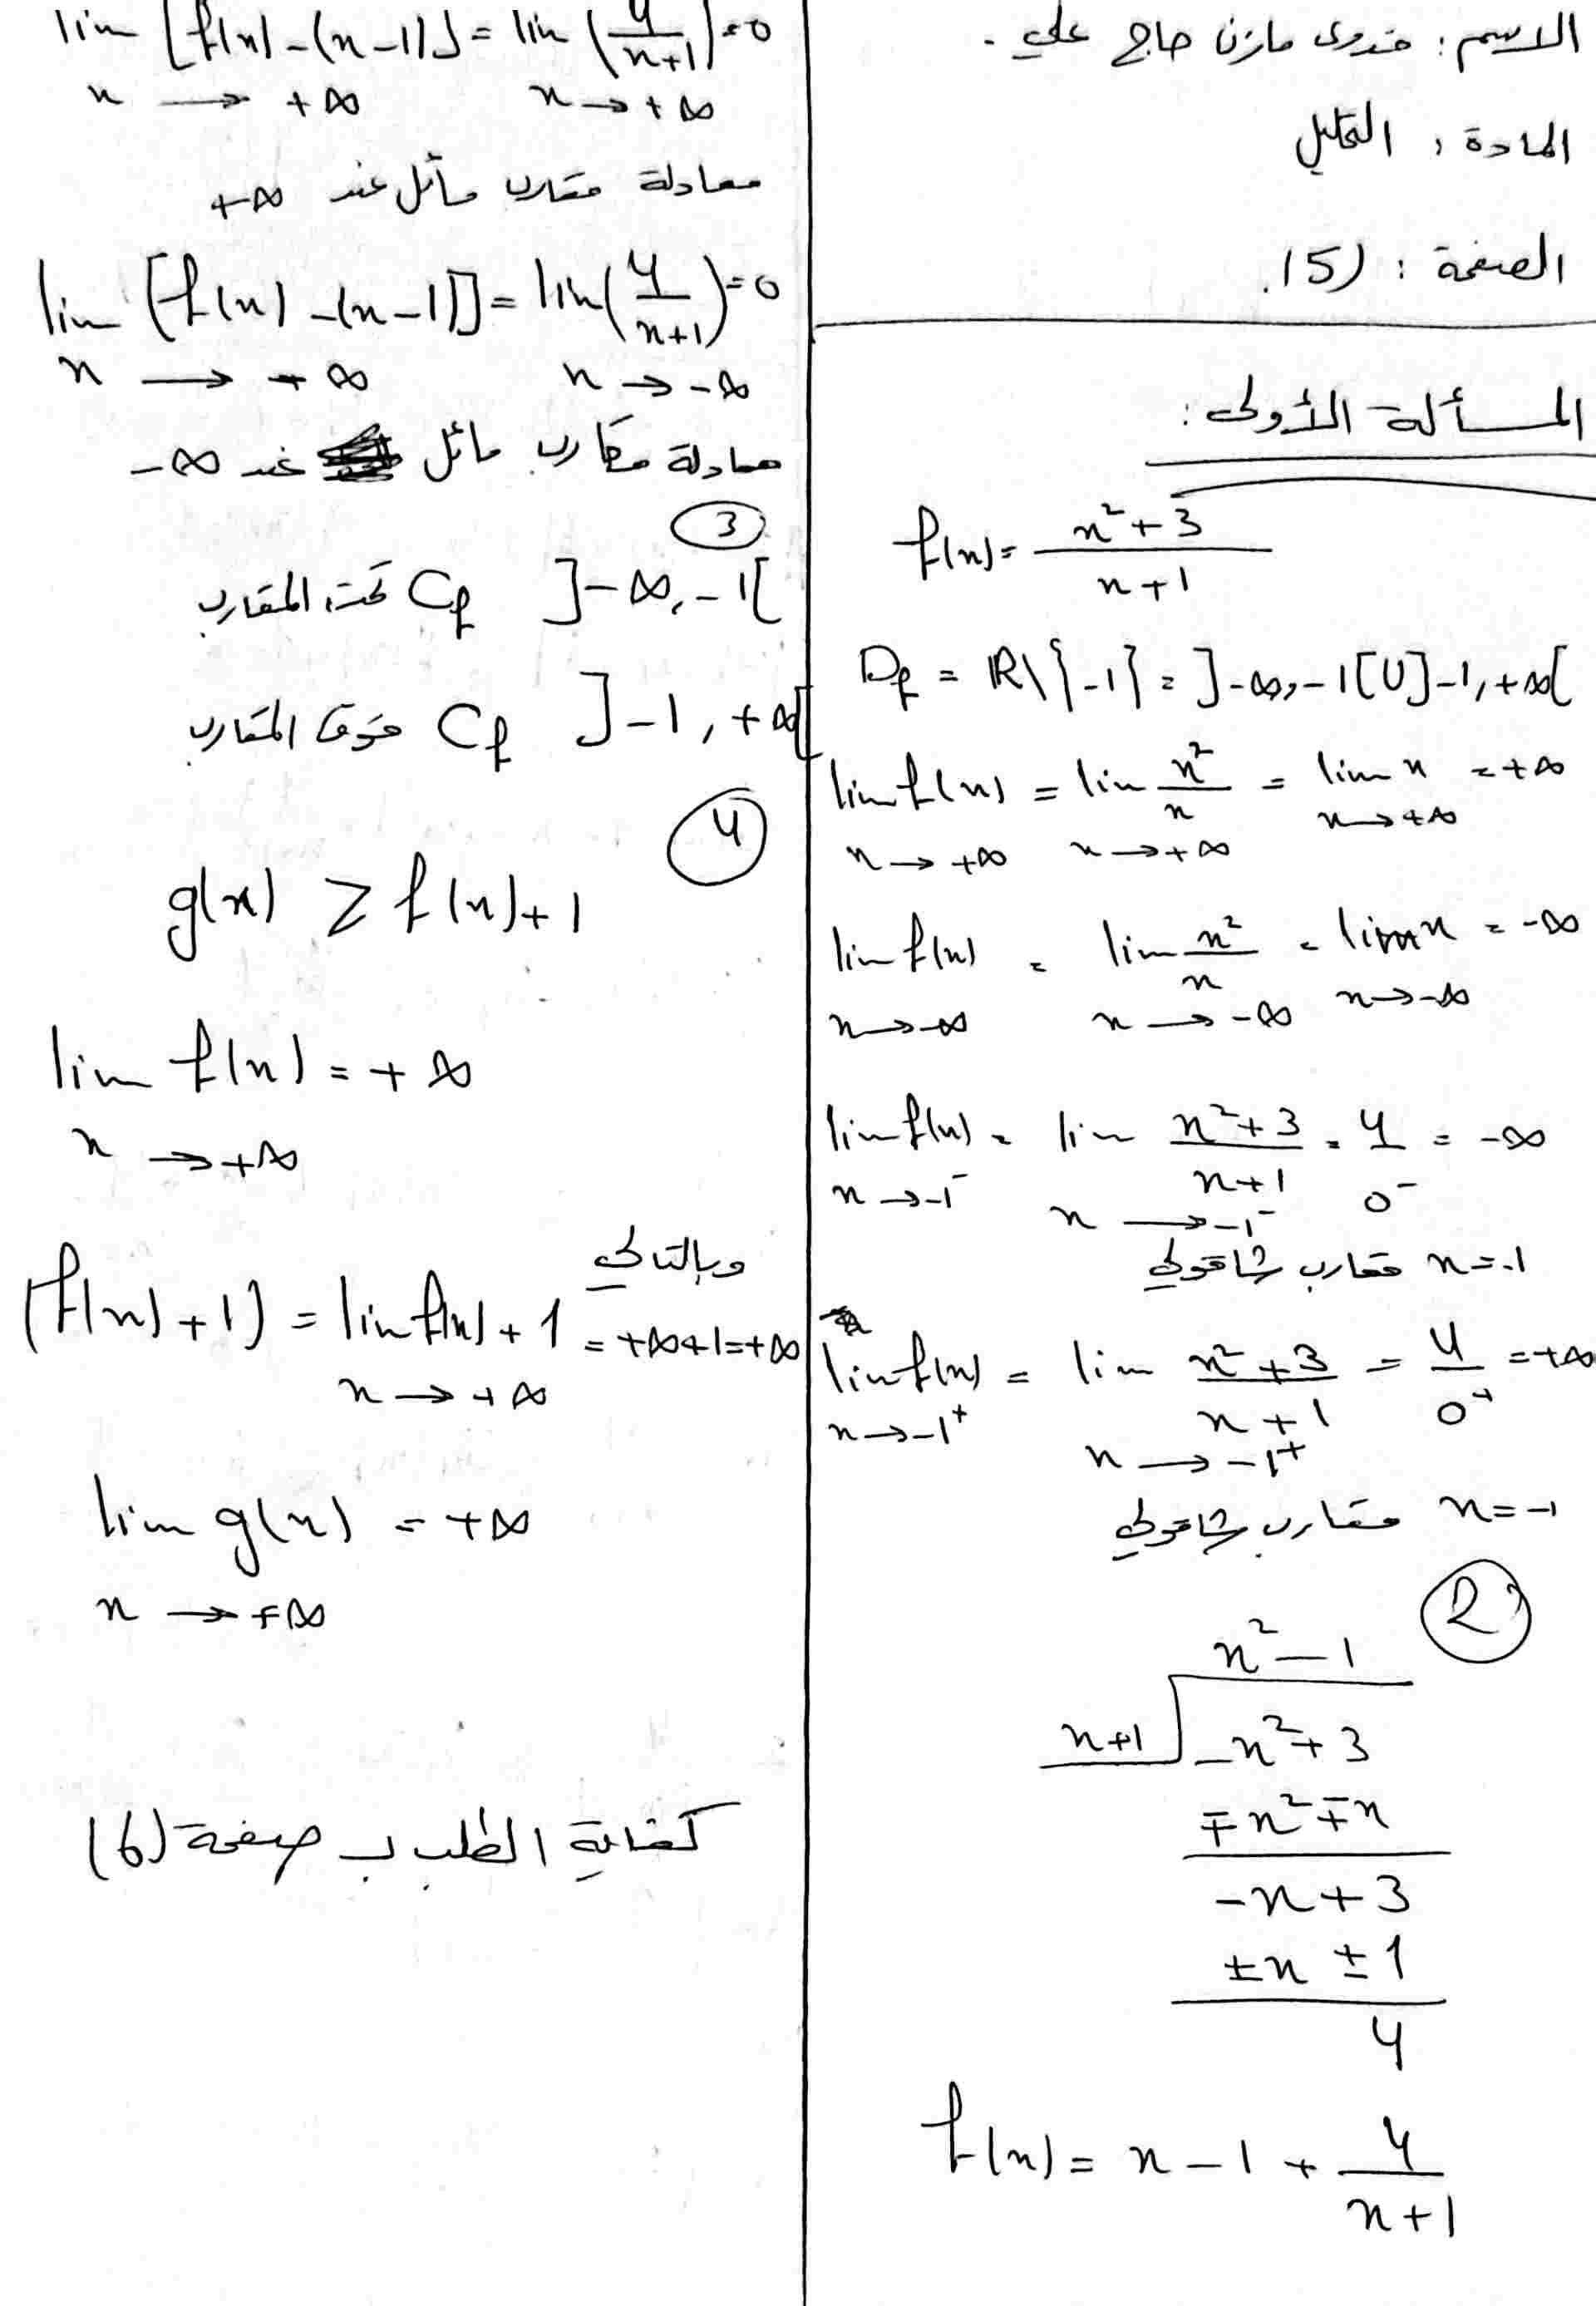 الاسم : فدوى مازن حاج علي .
المادة : التحليل
الصفحة : (5).
المسألة الأولى :
f(x) = \frac{x^2+3}{x+1}
D_f = R\{-1} = ]-∞,-1[U]-1,+∞[
lim f(x) = lim \frac{x^2}{x} = lim x = +∞
x→+∞ x→+∞ x→+∞
lim f(x) = lim \frac{x^2}{x} = lim x = -∞
x→-∞ x→-∞ x→-∞
lim f(x) = lim \frac{x^2+3}{x+1} = \frac{4}{0^-} = -∞
x→-1^- x→-1^-
x=-1 مقارب شاقولي
lim f(x) = lim \frac{x^2+3}{x+1} = \frac{4}{0^+} = +∞
x→-1^+ x→-1^+
x=-1 مقارب شاقولي
2
x^2-1
x+1 -x^2+3
∓x^2∓x
-x+3
±x ±1
4
f(x) = x-1+\frac{4}{x+1}
lim [f(x)-(x-1)] = lim (\frac{4}{x+1}) = 0
x → +∞ x→+∞
معادلة مقارب مائل عند +∞
lim [f(x)-(x-1)] = lim (\frac{4}{x+1}) = 0
x → -∞ x→-∞
معادلة مقارب مائل عند -∞
3
]-∞,-1[ C_f تحت المقارب
]-1,+∞[ C_f فوق المقارب
4
g(x) ≥ f(x)+1
lim f(x) = +∞
x →+∞
وبالتالي
(f(x)+1) = lim f(x)+1 = +∞+1=+∞
x→+∞
lim g(x) = +∞
x → +∞
الطلب ب صفحة (6)